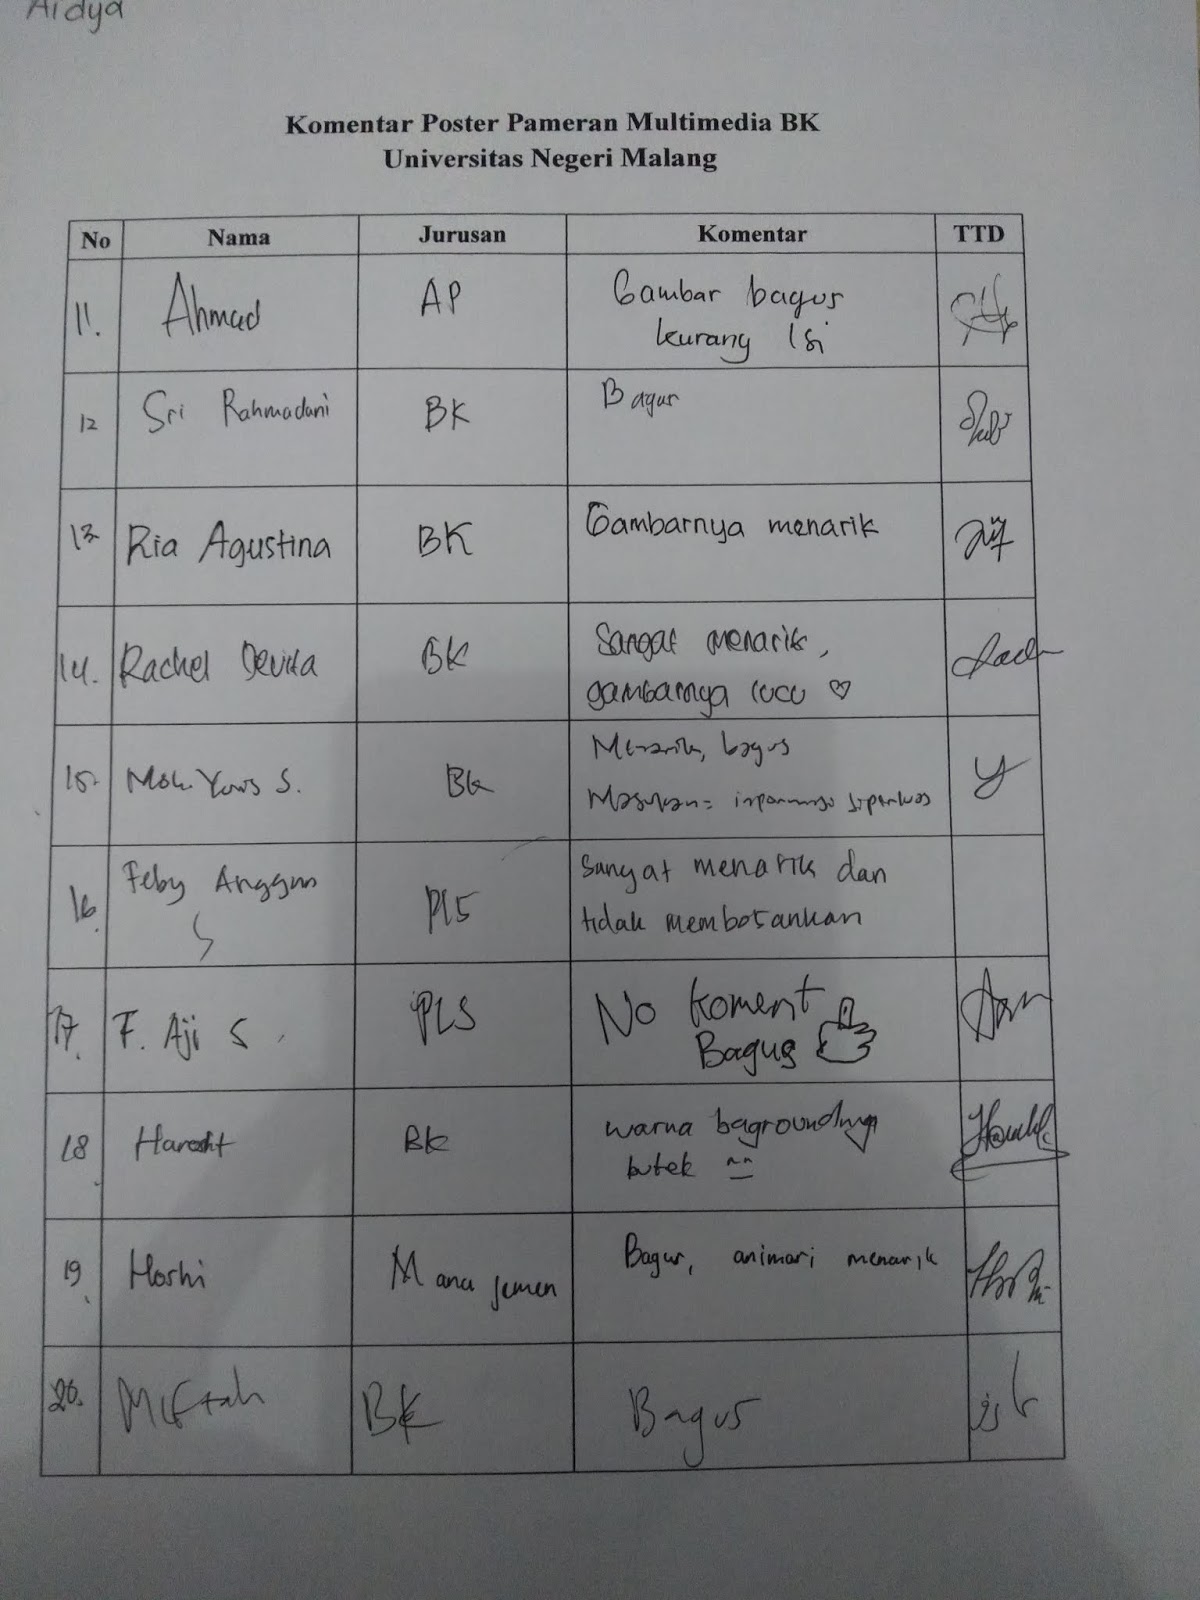 Aidya
Komentar Poster Pameran Multimedia BK
Universitas Negeri Malang
No Nama Jurusan Komentar TTD
11. Ahmad AP Gambar bagus
kurang Isi
12 Sri Rahmadani BK Bagus
13. Ria Agustina BK Gambarnya menarik
14. Rachel Devita BK Sangat menarik,
gambarnya lucu ♡
15. Moh. Yunus S. BK Menarik, bagus
Masukan = informasi diperluas
16. Feby Anggun PLS Sangat menarik dan
S tidak membosankan
17. F. Aji S PLS No Koment
Bagus
18 BK warna bagroundnya
butek
19. Hoshi Manajemen Bagus, animasi menarik
20. Miftah BK Bagus